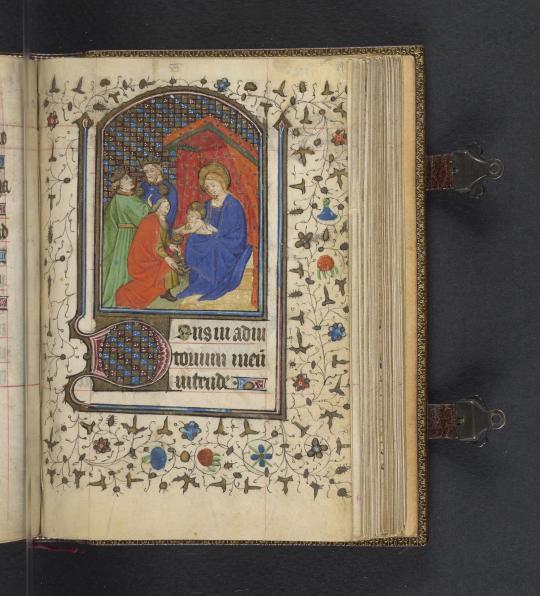 DEus in adiu
torium meū
intende